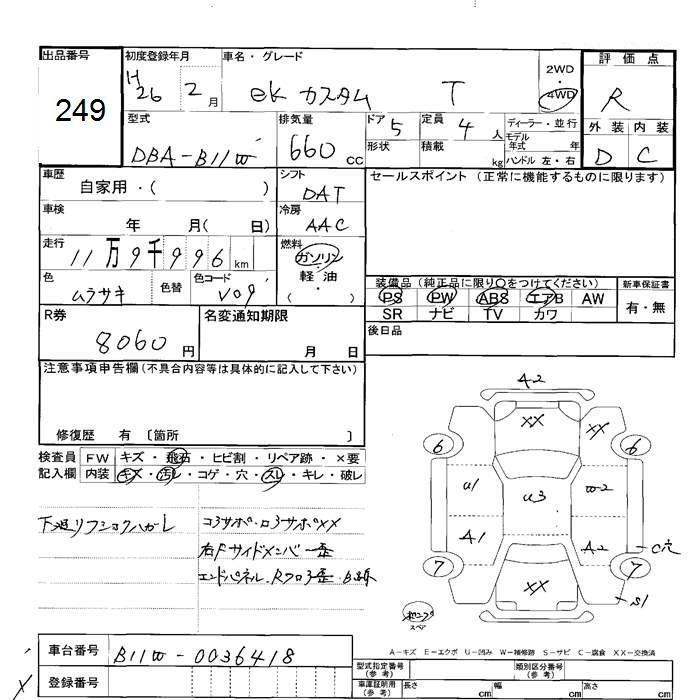 出品番号
249
初度登録年月
H26 2月
車名・グレード
ek カスタム T
2WD・4WD
評価点
R
外装 内装
D C
型式
DBA-B11W
排気量
660 cc
ドア 5
形状
定員 4 人
積載 kg
ディーラー・並行
モデル年式 年
ハンドル 左・右
車歴
自家用・( )
シフト
DAT
セールスポイント (正常に機能するものに限ります)
車検
年 月( 日)
冷房
AAC
走行
11万9千996km
燃料
ガソリン・軽油
( )
色
ムラサキ
色替
色コード
V09
装備品 (純正品に限り〇をつけてください)
PS PW ABS エアB AW
SR ナビ TV カワ
新車保証書
有・無
R券
8060円
名変通知期限
月 日
後日品
注意事項申告欄 (不具合内容等は具体的に記入して下さい)
修復歴 有 〔箇所 〕
検査員記入欄
FW キズ・飛石・ヒビ割・リペア跡・×要
内装 キズ・汚レ・コゲ・穴・スレ・キレ・破レ
コアサポ・ロアサポXX
右Fサイドメンバー歪
エンドパネル・Rフロア歪
A2
XX
XX
6
6
U1
U3
W2
A1
A2
C穴
7
7
XX
S1
スペア
A-キズ E-エクボ U-凹み W-補修跡 S-サビ C-腐食 XX-交換済
車台番号
B11W-0036418
登録番号
型式指定番号 (参考)
類別区分番号 (参考)
車庫証明用 (参考)
長さ cm
幅 cm
高さ cm